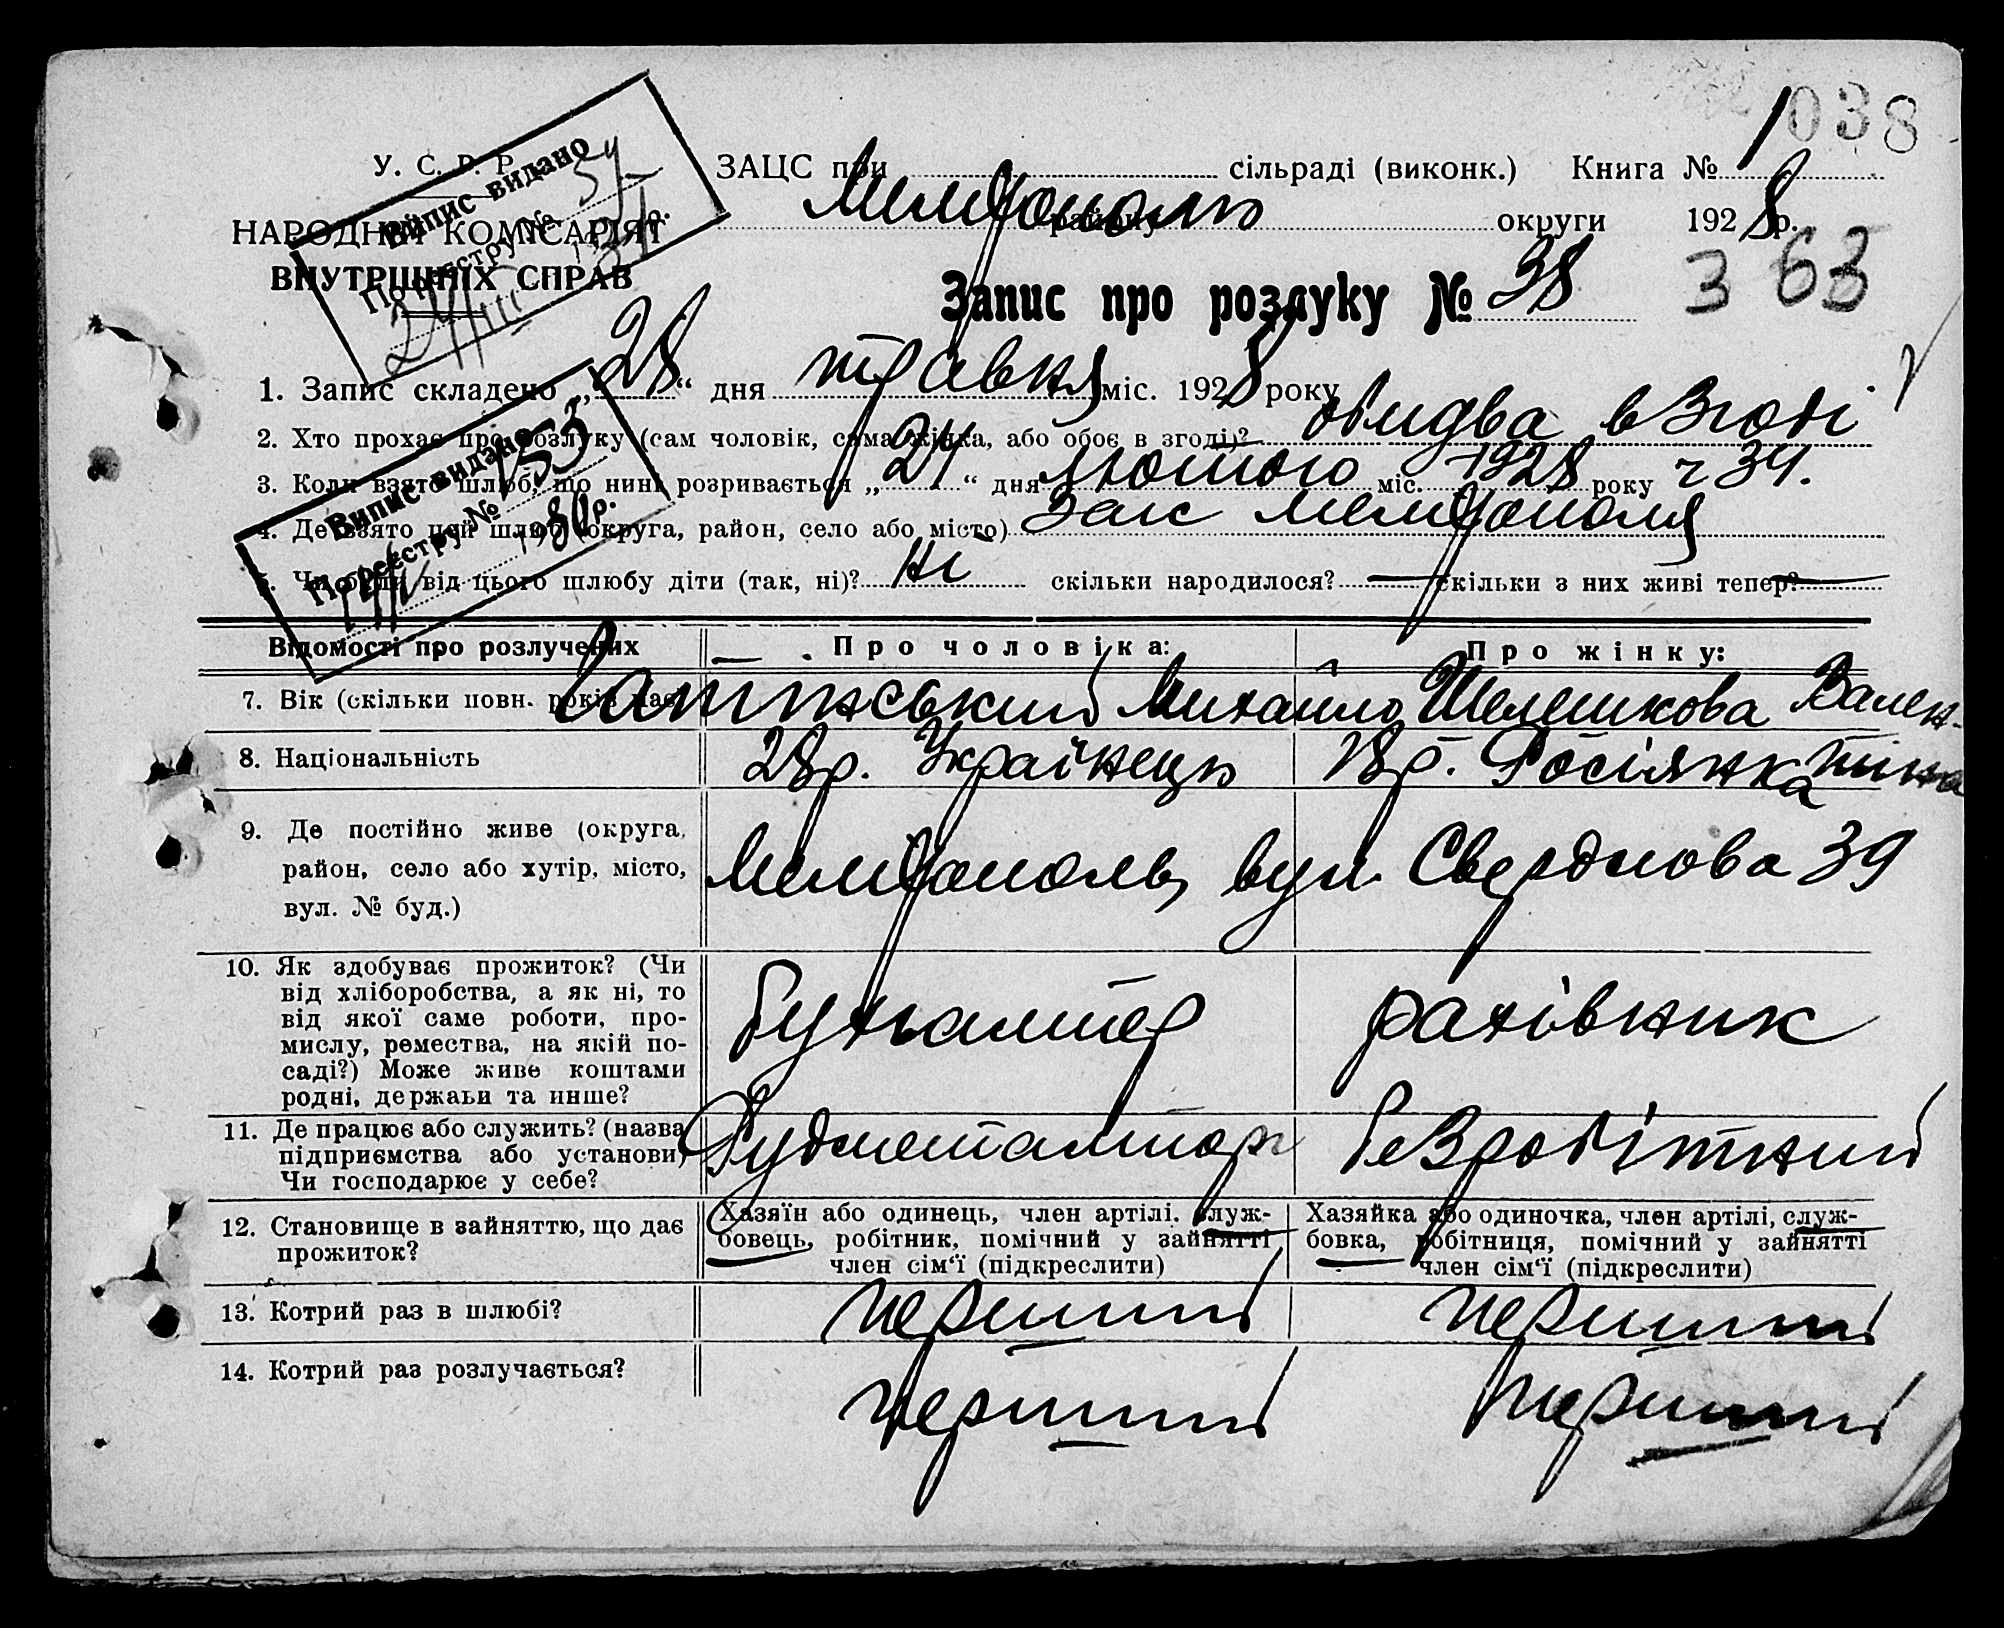 1038
У. С. Р. Р.
НАРОДНІЙ КОМІСАРІЯТ
ВНУТРІШНІХ СПРАВ
Випис видано
По реєстру №
193 р.
ЗАЦС при сільраді (виконк.) Книга № 1
Мелітополь району округи 1928 р.
Запис про розлуку № 38
363
1. Запис складено „28“ дня травня міс. 1928 року
2. Хто прохає про розлуку (сам чоловік, сама жінка, або обоє в згоді)? обидва в згоді
3. Коли взято шлюб, що нині розривається „24“ дня лютого міс. 1928 року ч 34.
4. Де взято цей шлюб (округа, район, село або місто) Загс Мелітополя
5. Чи були від цього шлюбу діти (так, ні)? ні скільки народилося? — скільки з них живі тепер? —
Випис видано 153
По реєстру №
1930 р.
Відомості про розлучених
Про чоловіка:
Про жінку:
7. Вік (скільки повн. років має)
Михайло
Шелешкова Валентина
8. Національність
28 р. Українець
18 р. Росіянка
9. Де постійно живе (округа, район, село або хутір, місто, вул. № буд.)
Мелітополь, вул. Свердлова 39
10. Як здобуває прожиток? (Чи
від хліборобства, а як ні, то
від якої саме роботи, про-
мислу, ремества, на якій по-
саді?) Може живе коштами
родні, держави та инше?
бухгалтер
рахівник
11. Де працює або служить? (назва
підприємства або установи)
Чи господарює у себе?
Рудметалторг
безробітний
12. Становище в зайняттю, що дає
прожиток?
Хазяїн або одинець, член артілі, служ-
бовець, робітник, помічний у зайнятті
член сім‘ї (підкреслити)
Хазяйка або одиночка, член артілі, служ-
бовка, робітниця, помічний у зайнятті
член сім‘ї (підкреслити)
13. Котрий раз в шлюбі?
перший
перший
14. Котрий раз розлучається?
перший
перший